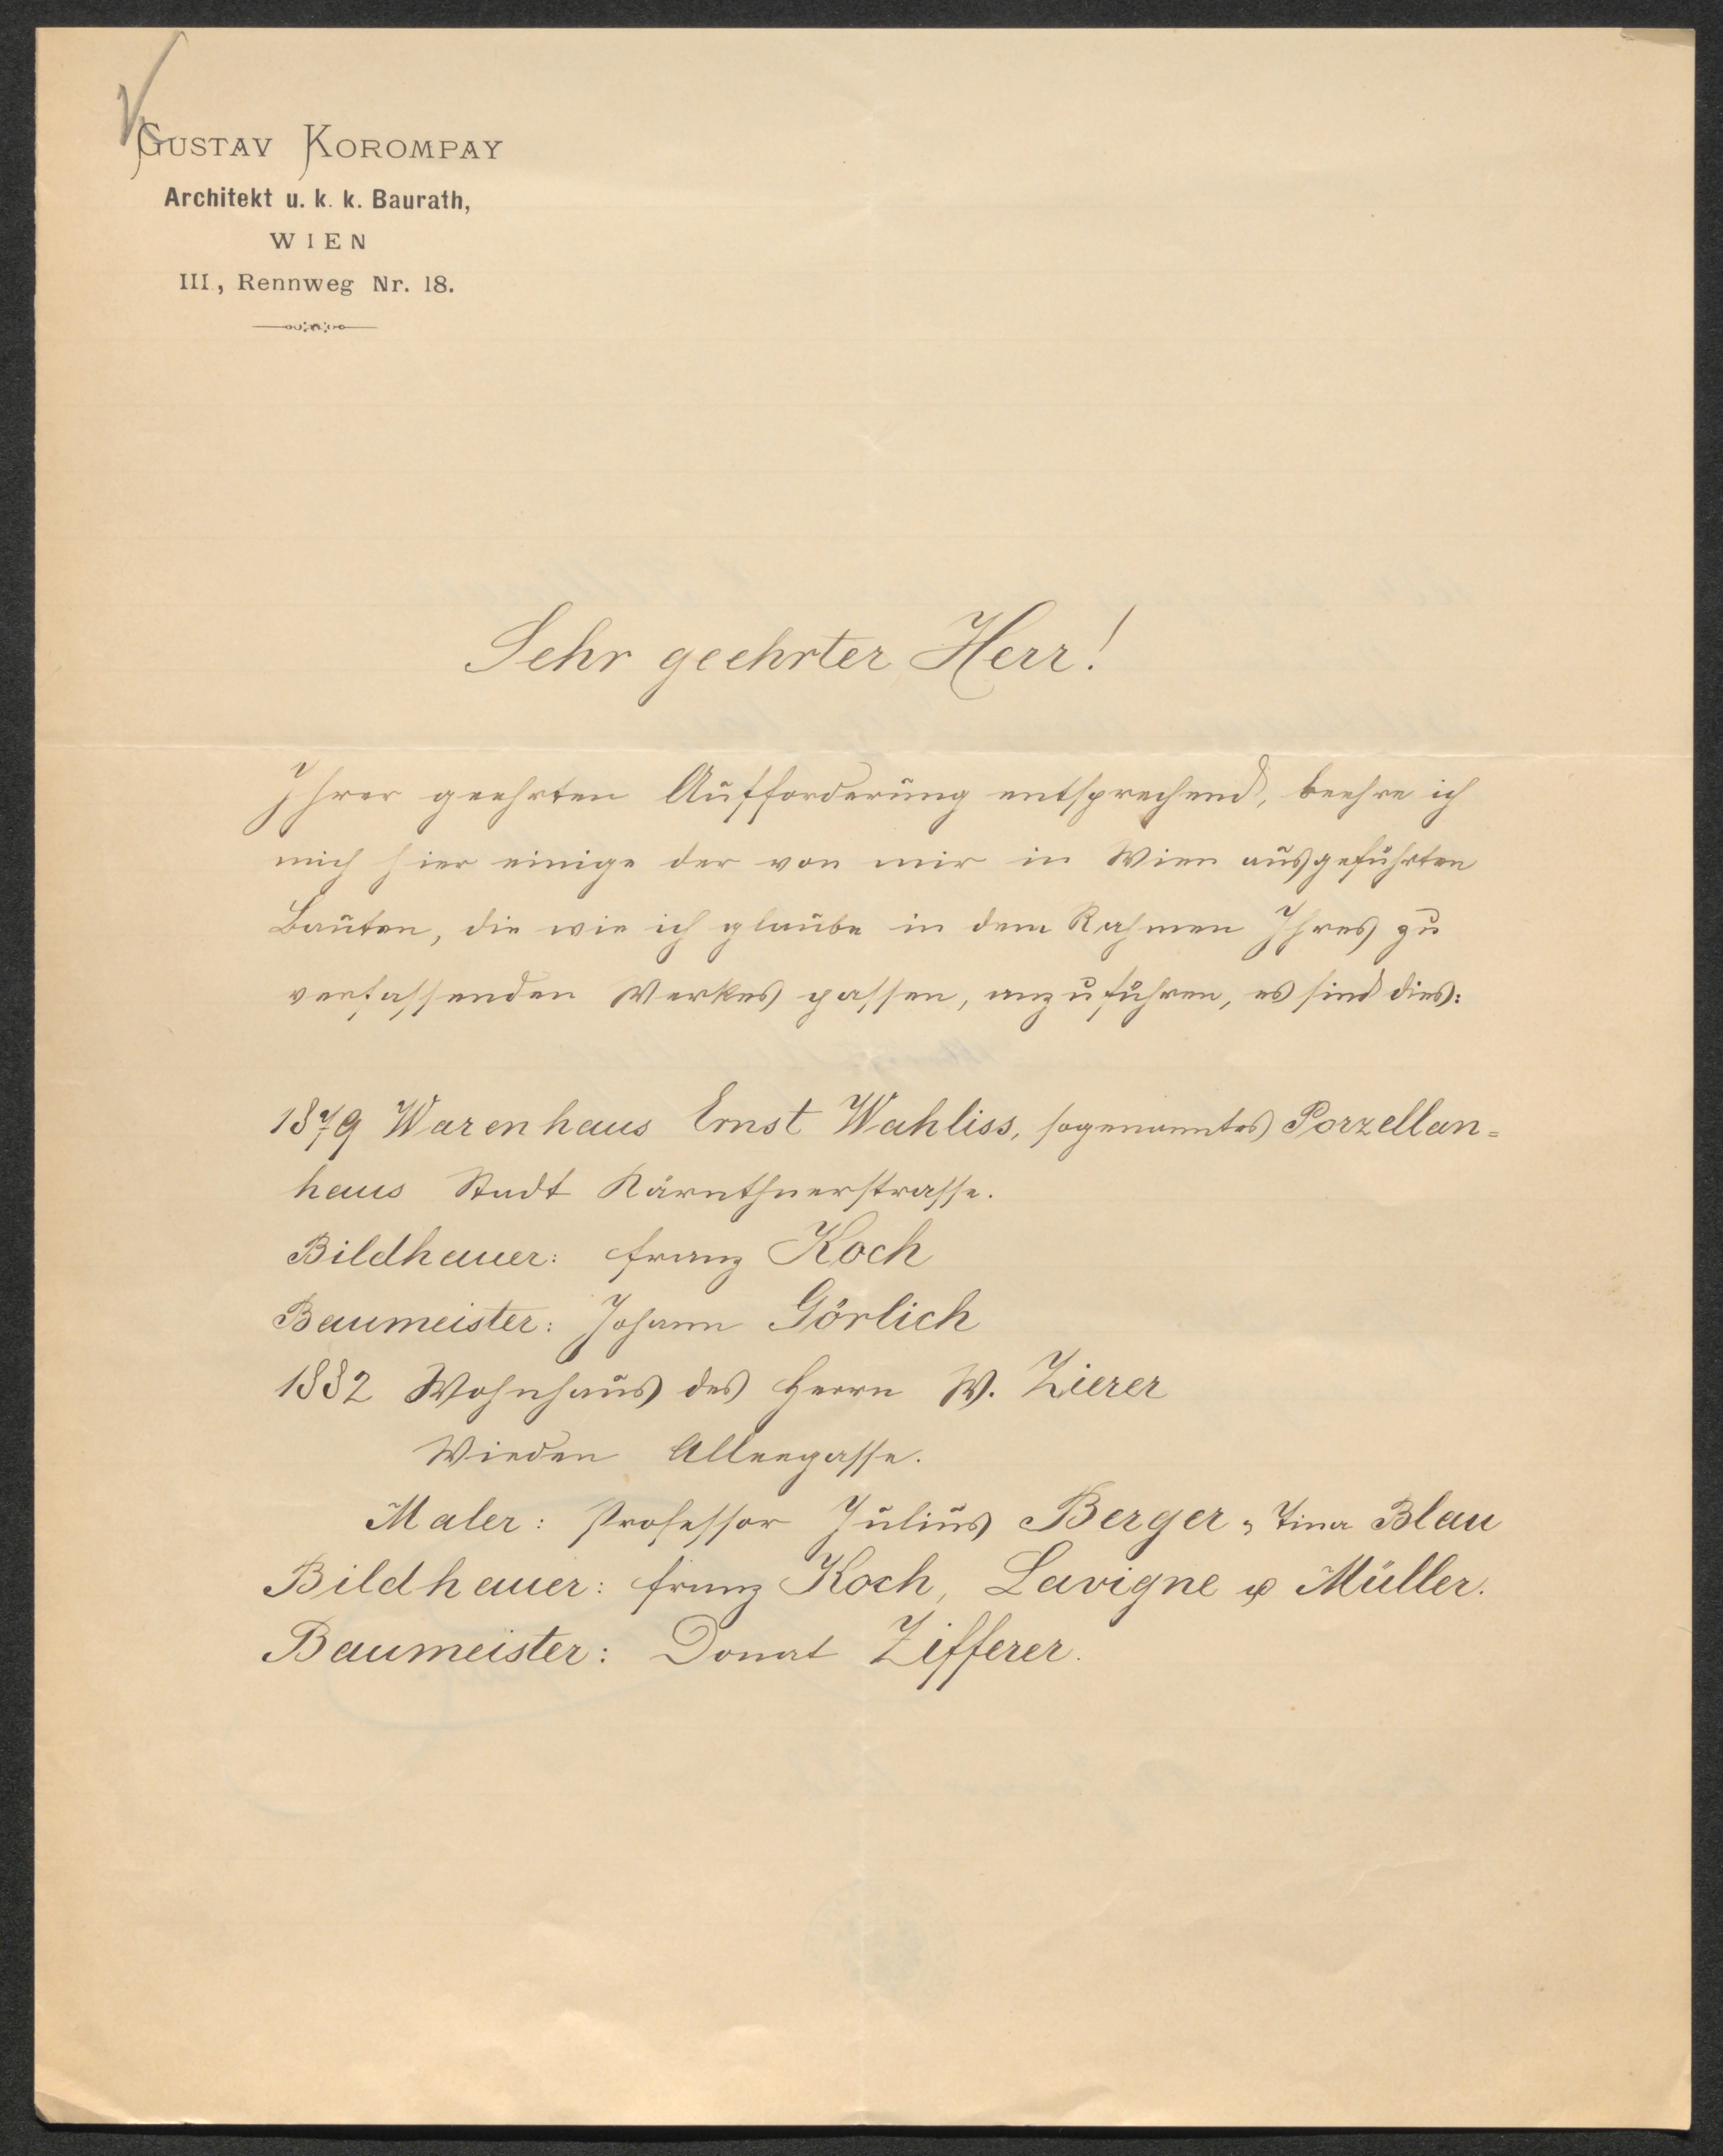 GUSTAV KOROMPAY
Architekt u. k. k. Baurath,
WIEN
III., Rennweg Nr. 18.
Sehr geehrter Herr!
Ihrer geehrten Aufforderung entsprechend, beehre ich
mich hier einige der von mir in Wien ausgeführten
Bauten, die wie ich glaube in dem Rahmen Ihres zu
verfassenden Werkes passen, anzuführen, es sind dies:
1879 Warenhaus Ernst Wahliss, sogenanntes Porzellan=
haus Stadt Kärnthnerstrasse.
Bildhauer: Franz Koch
Baumeister: Johann Görlich
1882 Wohnhaus des Herrn W. Zierer
Wieden Alleegasse.
Maler: Professor Julius Berger, Tina Blau
Bildhauer: Franz Koch, Lavigne u Müller.
Baumeister: Donat Zifferer.